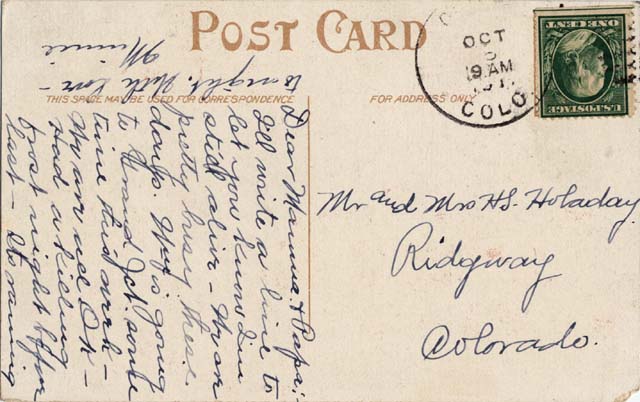 POST CARD
THIS SPACE MAY BE USED FOR CORRESPONDENCE
FOR ADDRESS ONLY
OCT
9 AM
COLO
U.S. POSTAGE
ONE CENT
Mr and Mrs H.S. Holaday
Ridgway
Colorado.
Dear Mamma & Papa:-
I'll write a line to
let you know I'm
still alive - We are
pretty busy these
days. is going
to Grand Jct. some
time this week -
We are all OK -
Had a killing
frost night before
last - Its raining
tonight. With Love -
Minnie